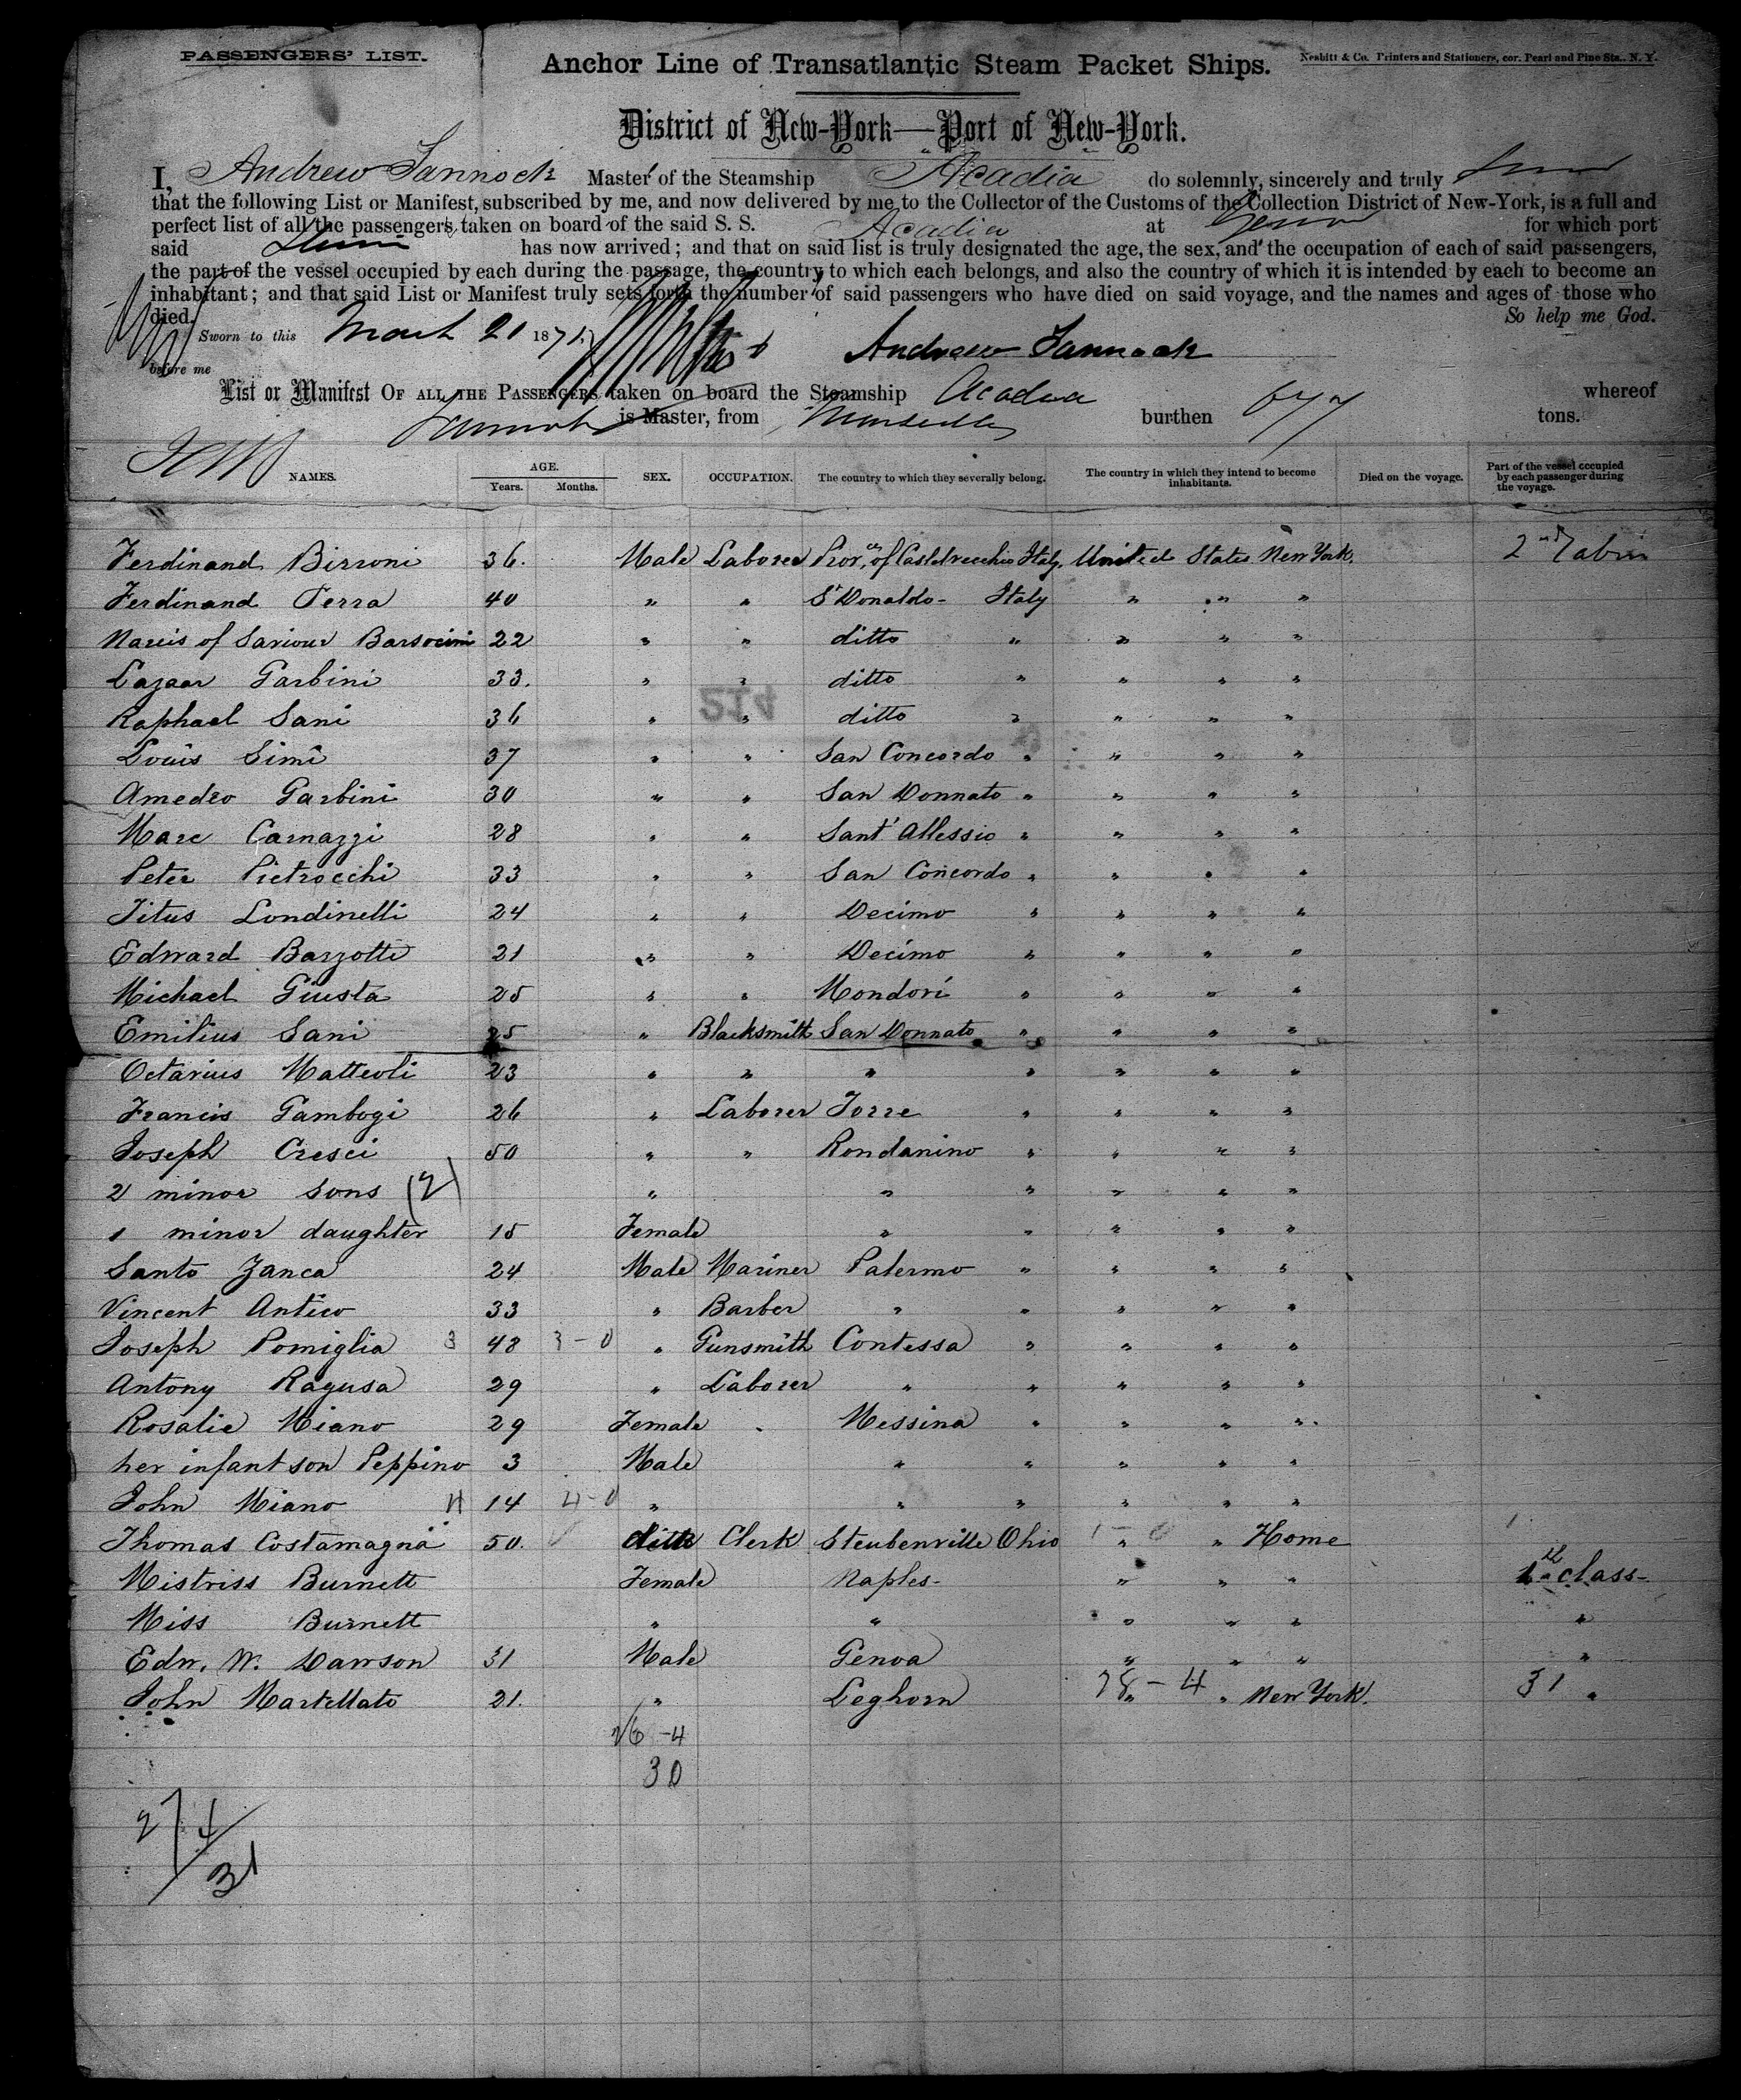 PASSENGERS' LIST.
Anchor Line of Transatlantic Steam Packet Ships.
Nesbitt & Co. Printers and Stationers, cor. Pearl and Pine Sts., N. Y.
District of New-York—Port of New-York.
I, Andrew Jannock Master of the Steamship Acadia do solemnly, sincerely and truly
that the following List or Manifest, subscribed by me, and now delivered by me to the Collector of the Customs of the Collection District of New-York, is a full and
perfect list of all the passengers taken on board of the said S. S. Acadia at Genoa for which port
said has now arrived; and that on said list is truly designated the age, the sex, and the occupation of each of said passengers,
the part of the vessel occupied by each during the passage, the country to which each belongs, and also the country of which it is intended by each to become an
inhabitant; and that said List or Manifest truly sets forth the number of said passengers who have died on said voyage, and the names and ages of those who
died. So help me God.
Sworn to this March 21 1871. Andrew Jannock
before me
List or Manifest OF ALL THE PASSENGERS taken on board the Steamship Acadia whereof
Jannock is Master, from Marseilles burthen 677 tons.
NAMES. AGE. Years. Months. SEX. OCCUPATION. The country to which they severally belong. The country in which they intend to become inhabitants. Died on the voyage. Part of the vessel occupied by each passenger during the voyage.
Ferdinand Birroni 36. Male Laborer Prov.ce of Castelvecchio Italy. United States New York. 2nd Cabin
Ferdinand Perra 40 " " St Donaldo - Italy " " "
Narcis of Saviour Barsocini 22 " " ditto " " " "
Lazaar Garbini 33. " " ditto " " " "
Raphael Sani 36 " " ditto " " " "
514
Louis Simi 37 " " San Concordo " " " "
Amedeo Garbini 30 " " San Donnato " " " "
Marc Carnazzi 28 " " Sant' Allessio " " " "
Peter Pietrocchi 33 " " San Concordo " " " "
Titus Londinelli 24 " " Decimo " " " "
Edward Barzotti 21 " " Decimo " " " "
Michael Giusta 25 " " Mondori " " " "
Emilius Sani 25 " Blacksmith San Donnato " " " "
Octavius Matteoli 23 " " " " " " "
Francis Gambogi 26 " Laborer Torre " " " "
Joseph Cresci 50 " " Rondanino " " " "
2 minor sons (2) " " " " " "
1 minor daughter 15 Female " " " " "
Santo Zanca 24 Male Mariner Palermo " " " "
Vincent Antico 33 " Barber " " " " "
Joseph Pomiglia 3 48 3 - 0 " Gunsmith Contessa " " " "
Antony Ragusa 29 " Laborer " " " " "
Rosalie Miano 29 Female " Messina " " " "
her infant son Peppino 3 Male " " " " "
John Miano 4 14 4 - 0 " " " " " "
Thomas Costamagna 50. ditto Clerk Steubenville Ohio " 1 - 0 " Home
Mistriss Burnett Female Naples - " " " 1st class -
Miss Burnett " " " " " "
Edw. W. Dawson 31 Male Genoa " " " "
John Martellato 21. " Leghorn " 28 - 4 " New York. 31 "
26 - 4
30
27/4
31